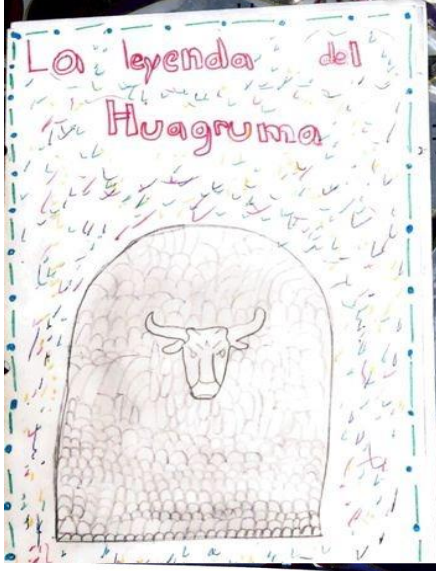 La leyenda del
Huagruma